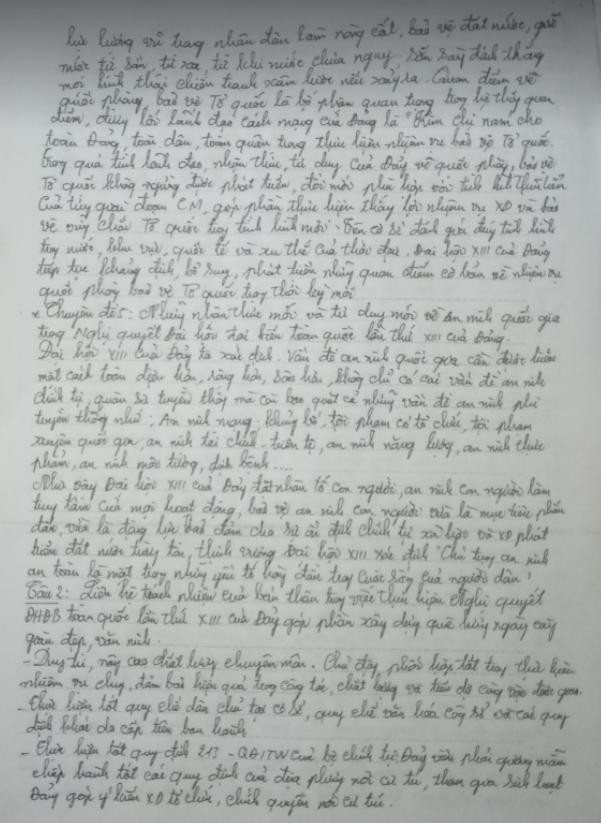 lực lượng vũ trang nhân dân làm nòng cốt, bảo vệ đất nước, giữ
nước từ sớm, từ xa, từ khi nước chưa nguy. Sẵn sàng đánh thắng
mọi hình thái chiến tranh xâm lược nếu xảy ra. Quan điểm về
quốc phòng, bảo vệ Tổ quốc là bộ phận quan trọng trong hệ thống quan
điểm, đường lối lãnh đạo cách mạng của Đảng là "Kim chỉ nam cho
toàn Đảng, toàn dân, toàn quân trong thực hiện nhiệm vụ bảo vệ Tổ quốc.
Trong quá trình lãnh đạo, nhận thức, tư duy của Đảng về quốc phòng, bảo vệ
Tổ quốc không ngừng được phát triển, đổi mới phù hợp với tình hình thực tiễn
của từng giai đoạn CM, góp phần thực hiện thắng lợi nhiệm vụ XD và bảo
vệ vững chắc Tổ quốc trong tình hình mới. Trên cơ sở đánh giá đúng tình hình
trong nước, khu vực, quốc tế và xu thế của thời đại. Đại hội XIII của Đảng
tiếp tục khẳng định, bổ sung, phát triển những quan điểm cơ bản về nhiệm vụ
quốc phòng bảo vệ Tổ quốc trong thời kỳ mới
* Chuyên đề 5: Những nhận thức mới và tư duy mới về An ninh quốc gia
trong Nghị quyết Đại hội đại biểu toàn quốc lần thứ XIII của Đảng.
Đại hội XIII của Đảng ta xác định. Vấn đề an ninh quốc gia cần được hiểu
một cách toàn diện hơn, rộng hơn, sâu hơn, không chỉ có các vấn đề an ninh
chính trị, quân sự truyền thống mà còn bao quát cả những vấn đề an ninh phi
truyền thống như: An ninh mạng, khủng bố, tội phạm có tổ chức, tội phạm
xuyên quốc gia, an ninh tài chính - tiền tệ, an ninh năng lượng, an ninh thực
phẩm, an ninh môi trường, dịch bệnh....
Như vậy Đại hội XIII của Đảng đặt nhân tố con người, an ninh con người làm
trung tâm của mọi hoạt động, bảo vệ an ninh con người vừa là mục tiêu phấn
đấu, vừa là động lực bảo đảm cho sự ổn định chính trị xã hội và XD phát
triển đất nước trường tồn, thịnh vượng Đại hội XIII xác định "Chú trọng an ninh
an toàn là một trong những yếu tố hàng đầu trong cuộc sống của người dân"
Câu 2: Liên hệ trách nhiệm của bản thân trong việc thực hiện Nghị quyết
ĐHĐB toàn quốc lần thứ XIII của Đảng góp phần xây dựng quê hương ngày càng
giàu đẹp, văn minh.
- Duy trì, nâng cao chất lượng chuyên môn. Chủ động, phối hợp tốt trong thực hiện
nhiệm vụ chung, đảm bảo hiệu quả trong công tác, chất lượng và tiến độ công việc được giao.
- Thực hiện tốt quy chế dân chủ tại cơ sở, quy chế văn hóa công sở và các quy
định khác do cấp trên ban hành
- Thực hiện tốt quy định 213 - QĐ/TW của bộ chính trị Đảng viên phải gương mẫu
chấp hành tốt các quy định của địa phương nơi cư trú, tham gia sinh hoạt
Đảng góp ý kiến XD tổ chức, chính quyền nơi cư trú.